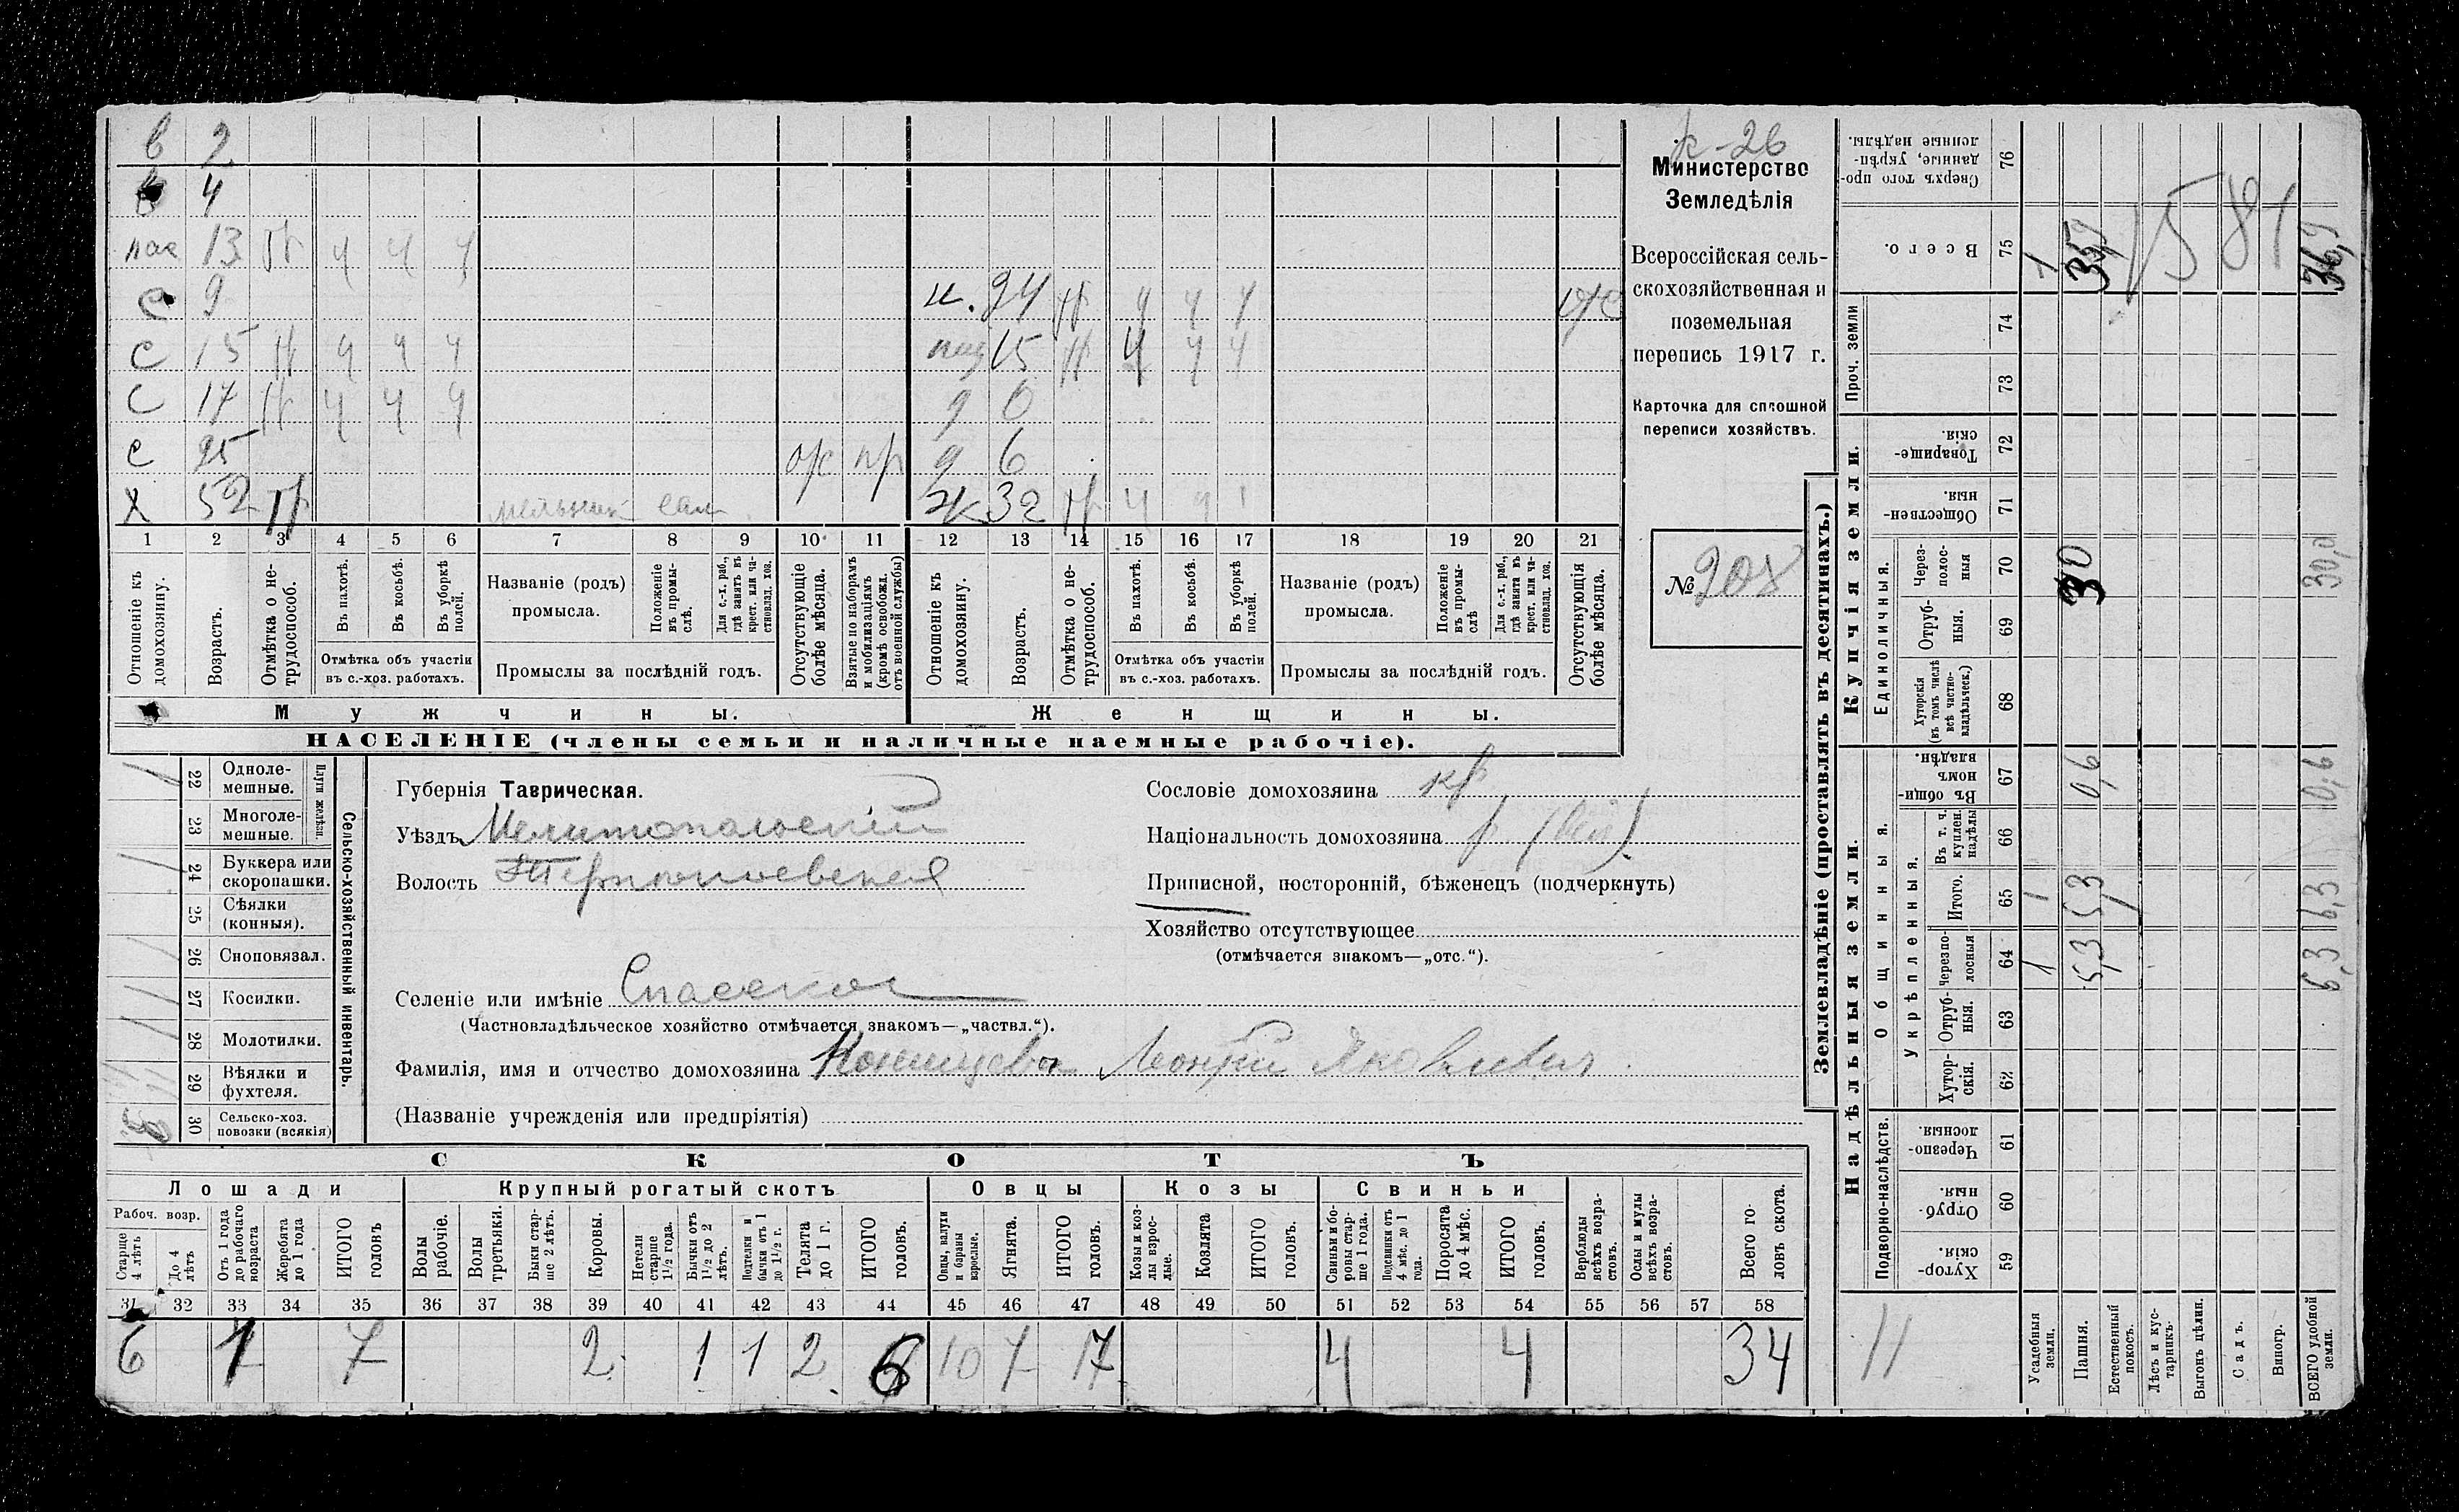 в 2
4
пас 13 Н ч ч ч
с 9
н. 24 Н ч ч ч
с 15 Н ч ч ч
пад 15 Н ч ч ч
с 17 Н ч ч ч
д 0
с 25 отс пр
д 6
х 52 Н мельник сам
ж 32 Н ч
1 2 3 4 5 6 7 8 9 10 11 12 13 14 15 16 17 18 19 20 21
Отношеніе къ домохозяину.
Возрастъ.
Отмѣтка о не-трудоспособ.
Въ пахотѣ.
Въ косьбѣ.
Въ уборкѣ полей.
Отмѣтка объ участіи
въ с.-хоз. работахъ.
Названіе (родъ)
промысла.
Положеніе въ промы-слѣ.
Для с.-х. раб., гдѣ занятъ въ крест. или ча-стновлад. хоз.
Промыслы за послѣдній годъ.
Отсутствующіе болѣе мѣсяца.
Взятые по наборамъ и мобилизаціямъ (кромѣ освобожд. отъ военной службы)
Отношеніе къ домохозяину.
Возрастъ.
Отмѣтка о не-трудоспособ.
Въ пахотѣ.
Въ косьбѣ.
Въ уборкѣ полей.
Отмѣтка объ участіи
въ с.-хоз. работахъ.
Названіе (родъ)
промысла.
Положеніе въ промы-слѣ
Для с.-х. раб., гдѣ занята въ крест. или ча-стновлад. хоз.
Промыслы за послѣдній годъ.
Отсутствующія болѣе мѣсяца.
Мужчины.
Женщины.
НАСЕЛЕНІЕ (члены семьи и наличные наемные рабочіе).
к-26
Министерство
Земледѣлія
Всероссійская сель-
скохозяйственная и
поземельная
перепись 1917 г.
Карточка для сплошной
переписи хозяйствъ.
№ 208
22 Однолемешные.
23 Многолемешные.
Плуги желѣзн.
24 Буккера или скоропашки.
25 Сѣялки (конныя).
26 Сноповязал.
27 Косилки.
28 Молотилки.
29 Вѣялки и фухтеля.
30 Сельско-хоз. повозки (всякія)
Сельско-хозяйственный инвентарь.
Губернія Таврическая.
Уѣздъ Мелитопольскій
Волость Терпеніевская
Селеніе или имѣніе Спасское
(Частновладѣльческое хозяйство отмѣчается знакомъ—„частвл.“).
Фамилія, имя и отчество домохозяина Леонтій Яковлевич
(Названіе учрежденія или предпріятія)
Сословіе домохозяина кр
Національность домохозяина
Приписной, посторонній, бѣженецъ (подчеркнуть)
Хозяйство отсутствующее
(отмѣчается знакомъ—„отс.“).
СКОТЪ
Лошади
Крупный рогатый скотъ
Овцы
Козы
Свиньи
Рабоч. возр.
Старше 4 лѣтъ
До 4 лѣтъ
Отъ 1 года до рабочаго возраста
Жеребята до 1 года
ИТОГО головъ
Волы рабочіе.
Волы третьяки.
Быки стар-ше 2 лѣтъ.
Коровы.
Нетели старше 1½ года.
Бычки отъ 1½ до 2 лѣтъ.
Подтелки и бычки отъ 1 до 1½ г.
Телята до 1 г.
ИТОГО головъ.
Овцы, валухи и бараны взрослые.
Ягнята.
ИТОГО головъ.
Козы и коз-лы взрос-лые.
Козлята
ИТОГО головъ.
Свиньи и бо-ровы стар-ше 1 года.
Подсвинки отъ 4 мѣс. до 1 года.
Поросята до 4 мѣс.
ИТОГО головъ.
Верблюды всѣхъ возра-стовъ.
Ослы и мулы всѣхъ возра-стовъ.
Всего го-ловъ скота.
31 32 33 34 35 36 37 38 39 40 41 42 43 44 45 46 47 48 49 50 51 52 53 54 55 56 57 58
6 1 7 2 1 1 2 6 10 7 17 4 4 34
Землевладѣніе (проставлять въ десятинахъ.)
Надѣльныя земли.
Купчія земли.
Проч. земли
Подворно-наслѣдств.
Общинныя.
Укрѣпленныя.
Единоличныя.
Хутор-скія. 59
Отруб-ныя. 60
Черезпо-лосныя. 61
Хутор-скія. 62
Отруб-ныя. 63
Черезпо-лосныя 64
Итого. 65
Въ т. ч. куплен. надѣлы 66
Въ общи-номъ владѣн. 67
Хуторскія (въ томъ числѣ всѣ частно-владѣльческ.) 68
Отруб-ныя. 69
Через-полос-ныя 70
Обществен-ныя. 71
Товарище-скія. 72
73
74
Всего. 75
Сверхъ того про-данные, укрѣп-ленные надѣлы. 76
Усадебныя земли. 1 1 1
Пашня. 5,3 5,3 0,6 30 35,9
Естественный покосъ.
Лѣсъ и кус-тарникъ
Выгонъ цѣлин.
Садъ.
Виногр.
ВСЕГО удобной земли. 6,3 6,3 0,6 30,0 36,9
1581
11